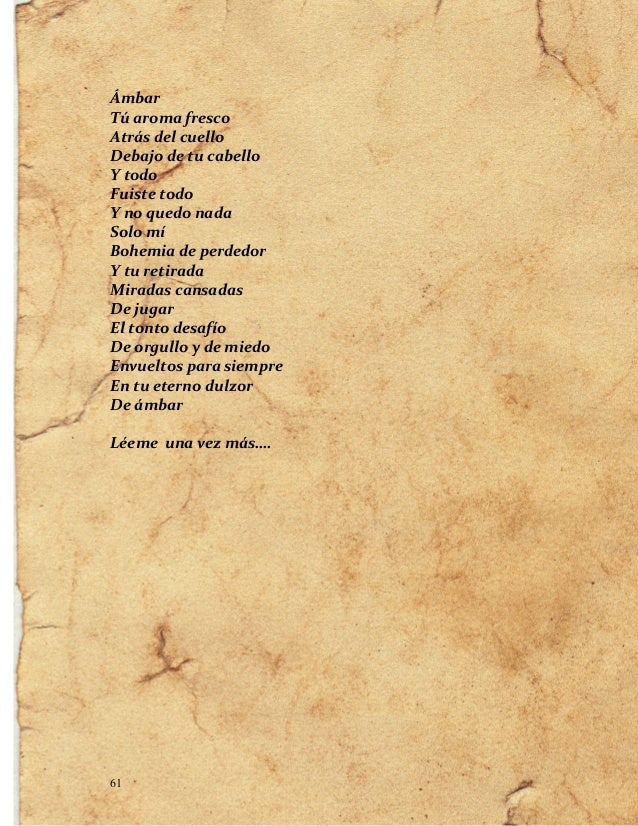 Ámbar
Tú aroma fresco
Atrás del cuello
Debajo de tu cabello
Y todo
Fuiste todo
Y no quedo nada
Solo mí
Bohemia de perdedor
Y tu retirada
Miradas cansadas
De jugar
El tonto desafío
De orgullo y de miedo
Envueltos para siempre
En tu eterno dulzor
De ámbar
Léeme una vez más....
61